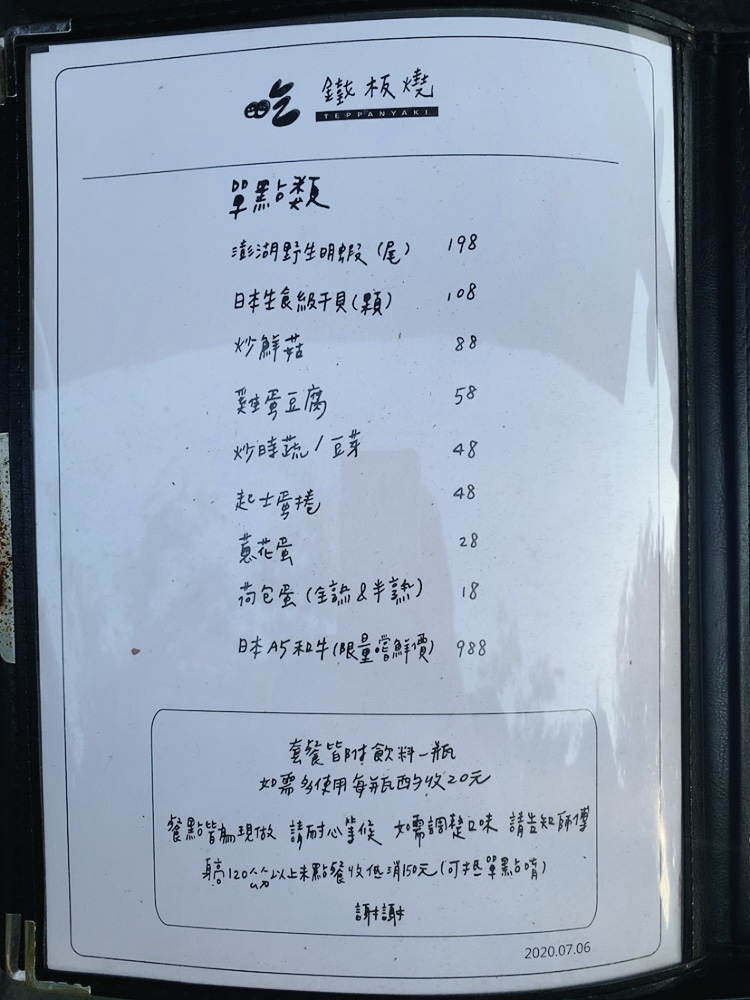 吃 鐵板燒
TEPPANYAKI
單點類
澎湖野生明蝦(尾) 198
日本生食級干貝(顆) 108
炒鮮菇 88
雞蛋豆腐 58
炒時蔬/豆芽 48
起士蛋捲 48
蔥花蛋 28
荷包蛋(全熟&半熟) 18
日本A5和牛(限量嚐鮮價) 988
套餐皆附飲料一瓶
如需多使用每瓶酌收20元
餐點皆為現做 請耐心等候 如需調整口味 請告知師傅
身高120公分以上未點餐收低消150元(可抵單點唷)
謝謝
2020.07.06